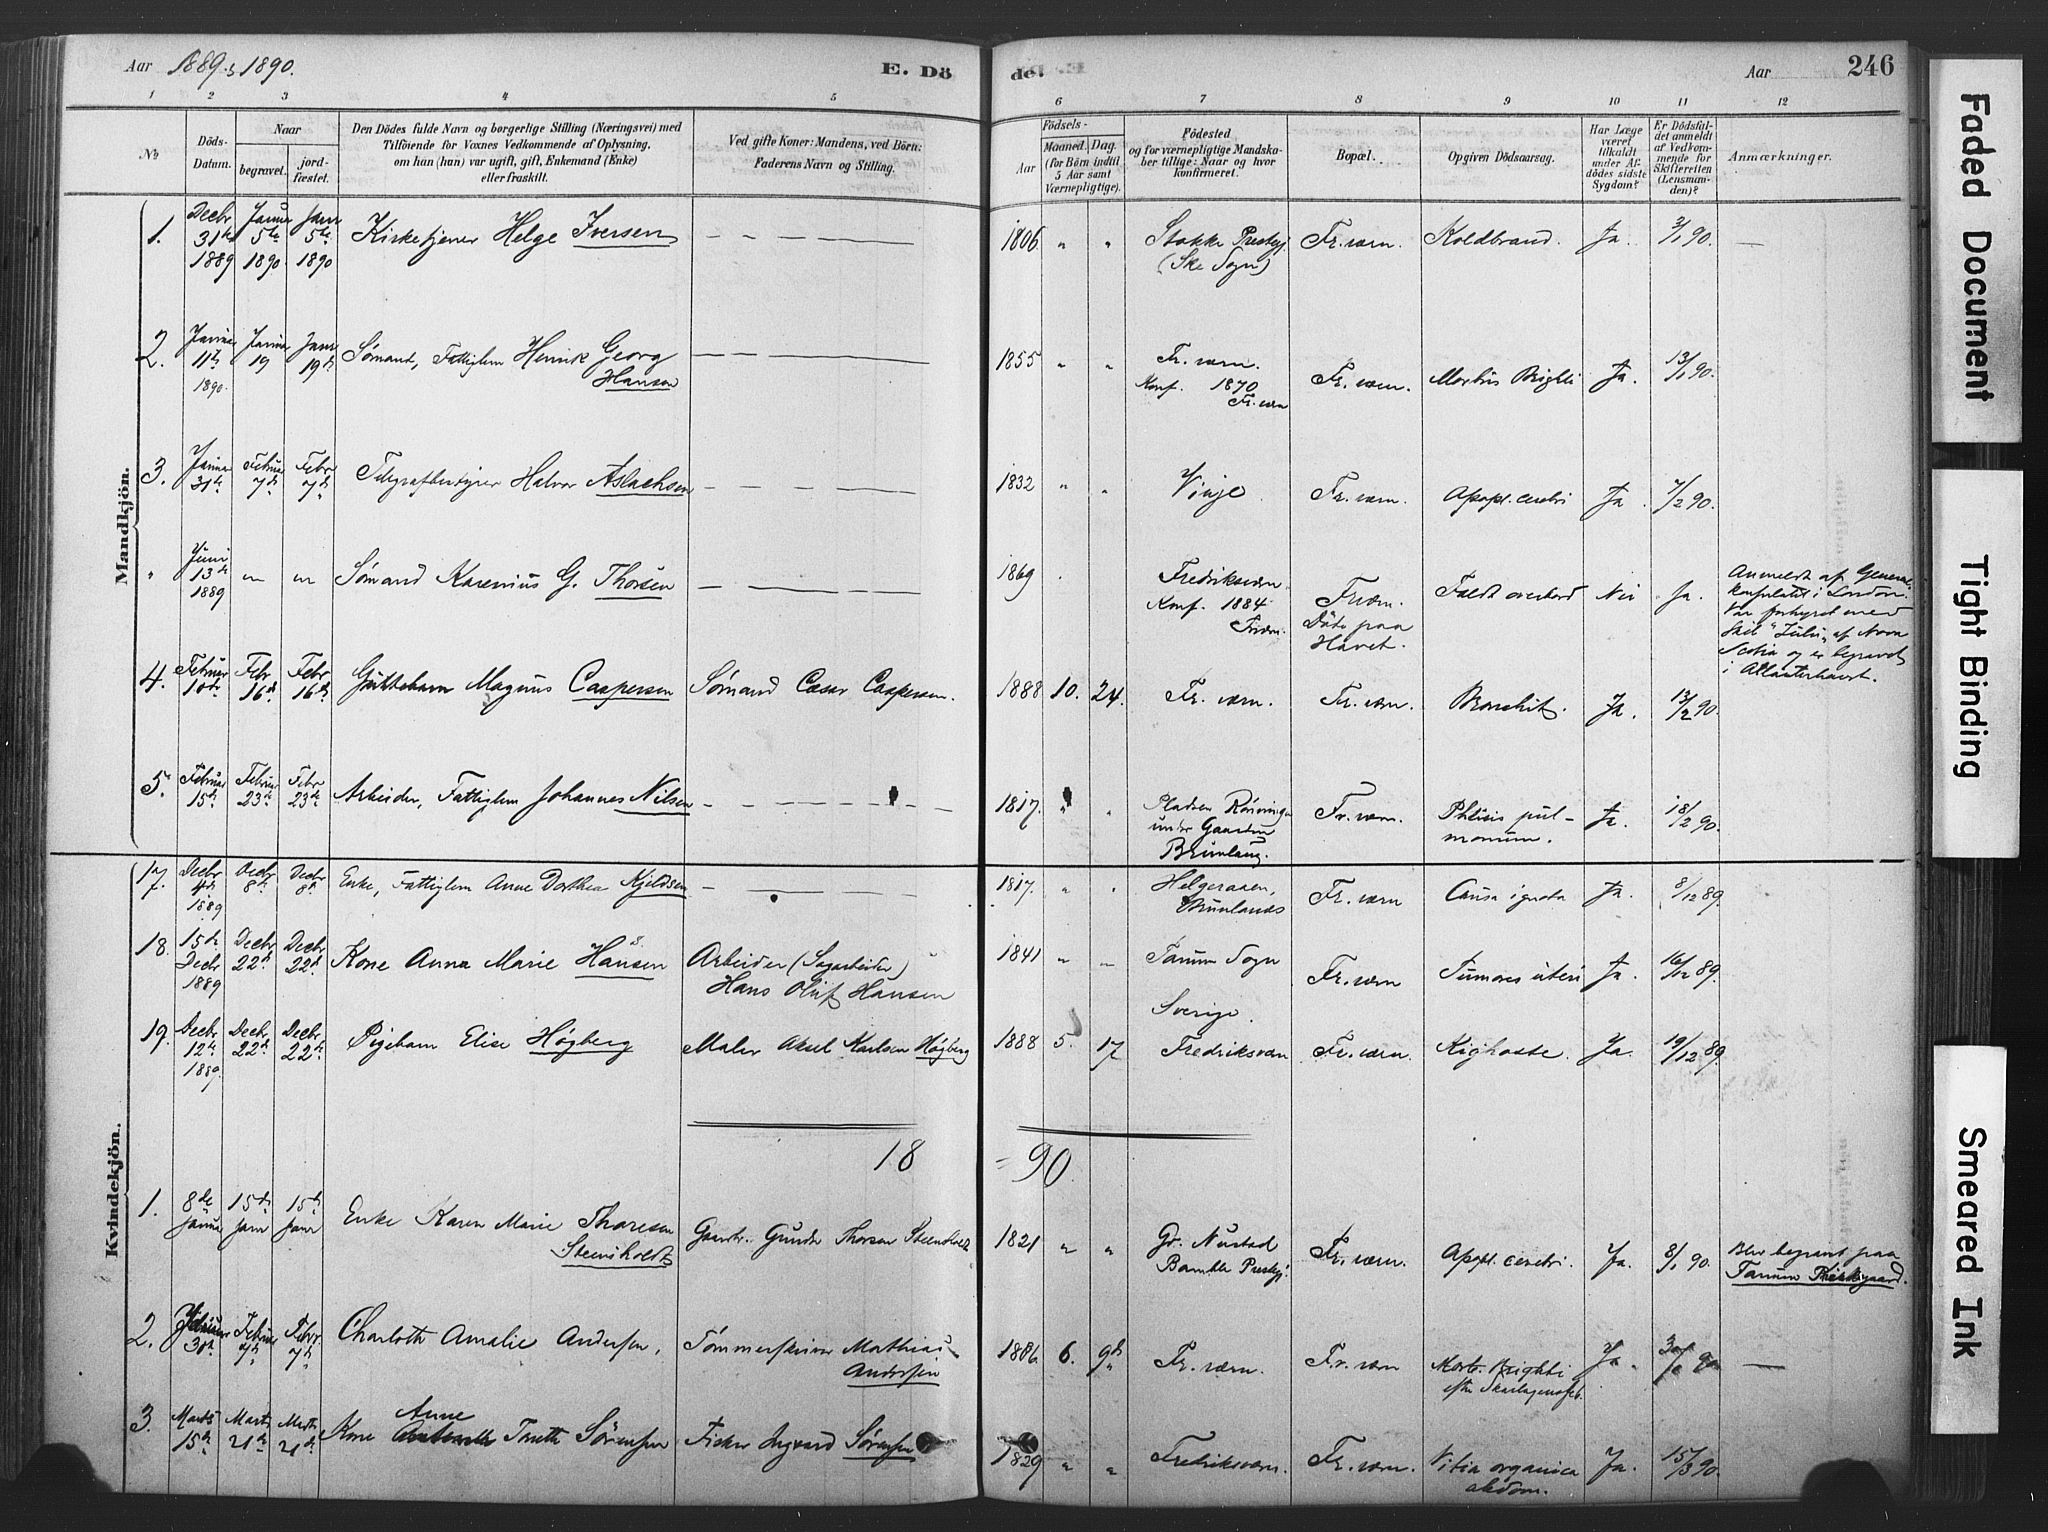 Aar 1889 & 1890.
E. Dö
de.
Aar
246
1 2 3 4 5 6 7 8 9 10 11 12
No
Döds-
Datum.
Naar
begravet.
jord-
fæstet.
Den Dödes fulde Navn og borgerlige Stilling (Næringsvei) med
Tilföiende for Voxnes Vedkommende af Oplysning,
om han (han) var ugift, gift, Enkemand (Enke)
eller fraskilt.
Ved gifte Koner: Mandens, ved Börn:
Faderens Navn og Stilling.
Födsels-
Aar
Maaned.
Dag.
(for Börn indtil
5 Aar samt
Værnepligtige).
Födested
og for værnepligtige Mandska-
ber tillige: Naar og hvor
konfirmeret.
Bopæl.
Opgiven Dödsaarsag.
Har Læge
været
tilkaldt
under Af-
dödes sidste
Sygdom?
Er Dödsfal-
det anmeldt
af Vedkom-
mende for
Skifteretten
(Lensman-
den)?
Anmærkninger.
Mandkjön.
1. Decbr 31te 1889 Januar 5te 1890 Janr 5te 1890 Kirketjener Helge Iversen 1806 " " Stokke Prestgj (Ske Sogn) Fr.værn. Koldbrand. Ja. 3/1 90.
2. Januar 11te 1890. Januar 19 Janr 19de Sømand, Fattiglem Henrik Georg Hansen 1855 " " Fr. værn. Konf. 1870 Fr.værn Fr.værn. Morbus Brightii Ja. 13/1 90.
3. Januar 31te Februar 7de Febr 7de Telegrafbestyrer Halvor Aslachsen 1832 " " Vinje. Fr.værn. Apopl. cerebri Ja. 7/2 90.
" Juni 13de 1889 Sømand Karenius G. Thorsen 1869 Fredriksværn Konf. 1884 Frværn. Frværn. Døde paa Havet. Faldt overbord Nei Ja. Anmeldt af General-
konsulatet i London.
Var forhyret med
Skib "Zulu" af Nova
Scotia og er begravet
i Atlanterhavet.
4. Februar 10de Febr 16de Febr 16de Guttebarn Magnus Caspersen Sømand Cæsar Caspersen. 1888 10. 24. Fr. værn. Fr. værn. Bronchit. Ja. 13/2 90.
5. Februar 15de Februar 23de Febr 23de Arbeider, Fattiglem Johannes Nilsen 1817. " " Pladsen Rönningen under Gaarden Brunlaug. Fr. værn. Phtisis pul-
monum. Ja. 18/2 90.
Kvindekjön.
17. Decbr 4de 1889 Decbr 8de Decbr 8de Enke, Fattiglem Anne Dorthea Kjeldsen 1817. " " Helgeraaen, Brunlanæs Fr. værn Causa ignota Ja. 8/12 89.
18. 15de Decbr 1889 Decbr 22de Decbr 22de Kone Anna Marie Hansen Arbeider (Sagarbeider) Hans Oluf Hansen 1841 " " Tanum Sogn Sverige. Fr. værn Tumores uteri Ja. 16/12 89.
19. Decbr 12te 1889 Decbr 22de Decbr 22de Pigebarn Elise Høgberg Maler Aksel Karlsen Høgberg 1888 5. 17 Fredriksværn Fr. værn. Kighoste. Ja. 19/12 89.
18 90
1. 8de Januar 15de Janr 15de Janr Enke Karen Marie Thoresen Steensholdt Gaardbr. Gunder Thorsen Steensholt 1821 " " Gr. Nustad Bamble Prestgj. Fr. værn. Apopl. cerebri. Ja. 8/1 90. Blev begravet paa
Tanum Kirkegaard.
2. Januar 30te Februar 7de Febr 7de Charlotte Amalie Andersen, Tømmerskriver Mathias Andersen 1886. 6. 9de Fr. værn. Fr. værn Morb. Brightii
efter Skarlagensfeb. Ja. 30/1 90
3. Marts 15de Marts 21de Marts 21de Kone Anne Tonette Sörensen Fisker Ingvard Sörensen 1829 " " Fredriksværn. Fr. værn. Vitia organica
abdom. Ja. 15/3 90.
Faded Document
Tight Binding
Smeared Ink